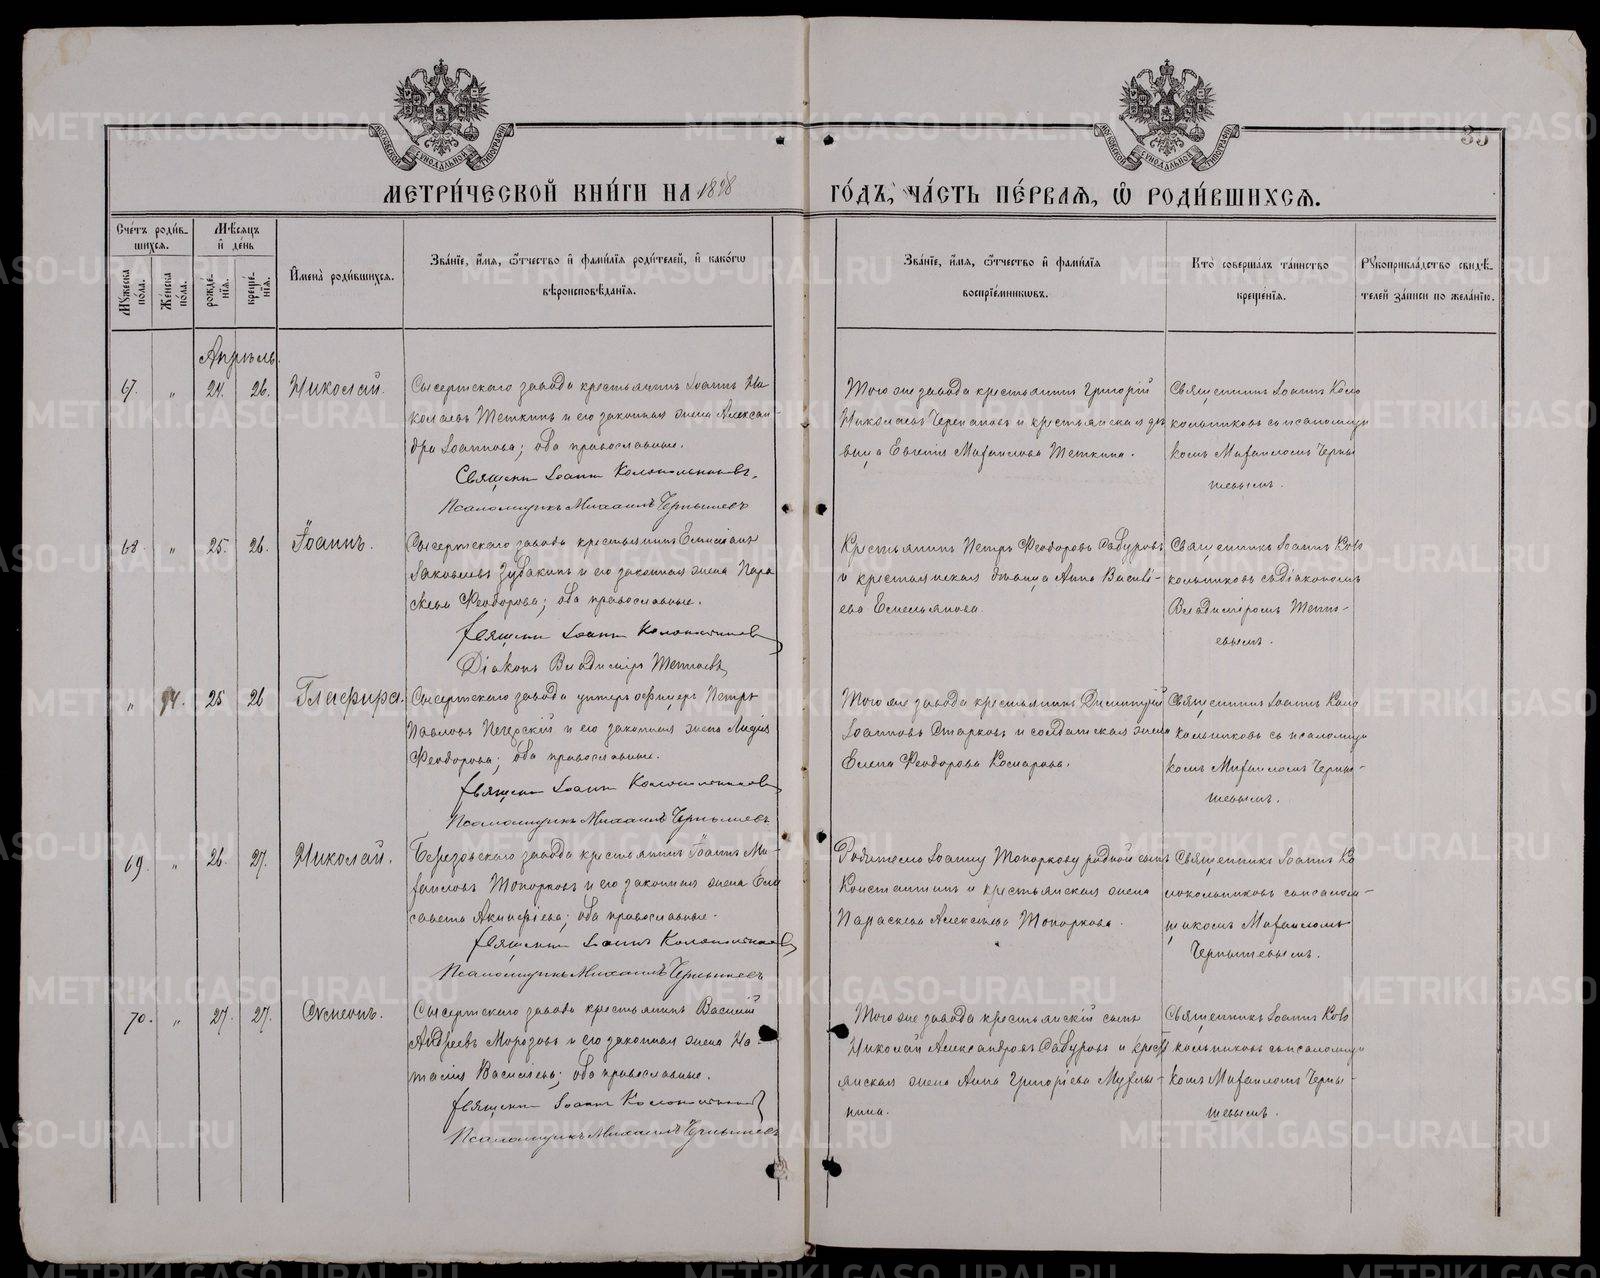 35
МОСКОВСКОЙ СѴНОДАЛЬНОЙ ТИПОГРАФІИ
МОСКОВСКОЙ СѴНОДАЛЬНОЙ ТИПОГРАФІИ
МЕТРИ́ЧЕСКОЙ КНИ́ГИ НА 1898 ГО́ДЪ, ЧА́СТЬ ПЕ́РВАЯ, Ѡ РОДИ́ВШИХСЯ.
Сче́тъ роди́в-
шихся.
Му́жеска по́ла.
Же́нска по́ла.
Мѣ́сяцъ
и де́нь
рожде́-
нія.
креще́-
нія.
Имена̀ роди́вшихся.
Зва́ніе, и́мя, ѻ́тчество и фами́лія роди́телей, и како́гѡ
вѣроисповѣ́данія.
Зва́ніе, и́мя, ѻ́тчество и фами́лія
воспріе́мниковъ.
Кто̀ соверша́лъ та́инство
креще́нія.
Рꙋкоприкла́дство свидѣ́-
телей за́писи по жела́нію.
Апрѣль.
67. " 24. 26. Николай.
Сысертскаго завода крестьянинъ Іоаннъ Ни-
колаевъ Теткинъ и его законная жена Алексан-
дра Іоаннова; оба православные.
Священн Іоаннъ Колокольниковъ.
Псаломщикъ Михаилъ Чернышевъ
Того же завода крестьянинъ Григорій
Николаевъ Черепановъ и крестьянская дѣ
вица Евгенія Михаилова Теткина.
Священникъ Іоаннъ Коло
кольниковъ съ псаломщи
комъ Михаиломъ Черны
шевымъ.
68. " 25. 26. Іоаннъ.
Сысертскаго завода крестьянинъ
Іаковлевъ Зубакинъ и его законная жена Пара
скева Феодорова; оба православные.
Священн Іоаннъ Колокольниковъ
Діаконъ Владимиръ
Крестьянинъ Петръ Феодоровъ Сабуровъ
и крестьянская дѣвица Анна Василі-
ева Емельянова.
Священникъ Іоаннъ Коло
кольниковъ съ діакономъ
Владиміромъ
евымъ.
" 74. 25 26 Глафира.
Сысертскаго завода унтеръ офицеръ Петръ
Павловъ и его законная жена Лидія
Феодорова; оба православные.
Священн Іоаннъ Колокольниковъ
Псаломщикъ Михаилъ Чернышевъ
Того же завода крестьянинъ Димитрій
Іоанновъ Старковъ и солдатская жена
Елена Феодорова Комарова.
Священникъ Іоаннъ Коло
кольниковъ съ псаломщи
комъ Михаиломъ Черны-
шевымъ.
69. " 26. 27. Николай.
Березовскаго завода крестьянинъ Іоаннъ Ми-
хаиловъ Топорковъ и его законная жена Ели
савета Акинфіева; оба православные.
Священн Іоаннъ Колокольниковъ
Псаломщикъ Михаилъ Чернышевъ
Родителю Іоанну Топоркову родной сынъ
Константинъ и крестьянская жена
Параскева Алексіева Топоркова.
Священникъ Іоаннъ Ко
локольниковъ съ псалом-
щикомъ Михаиломъ
Чернышевымъ.
70. " 27. 27. Сѵмеонъ.
Сысертскаго завода крестьянинъ Василій
Андреевъ Морозовъ и его законная жена На-
талія Василіева; оба православные.
Священн Іоаннъ Колокольниковъ
Псаломщикъ Михаилъ Чернышевъ
Того же завода крестьянскій сынъ
Николай Александровъ Сабуровъ и крест
янская жена Анна Григоріева
нина.
Священникъ Іоаннъ Коло
кольниковъ съ псаломщи
комъ Михаиломъ Черны-
шевымъ.
METRIKI.GASO-URAL.RU